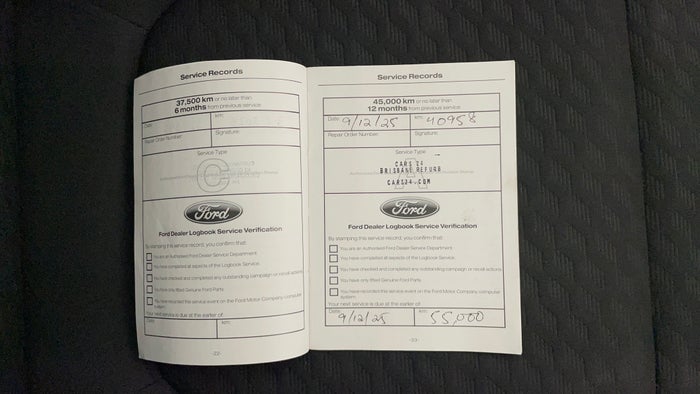 Service Records
37,500 km or no later than
6 months from previous service
Date:
km:
Repair Order Number:
Signature:
Service Type
Ford
Ford Dealer Logbook Service Verification
By stamping this service record, you confirm that:
You are an Authorised Ford Dealer Service Department.
You have completed all aspects of the Logbook Service.
You have checked and completed any outstanding campaign or recall actions.
You have only fitted Genuine Ford Parts.
You have recorded this service event on the Ford Motor Company computer
system.
Your next service is due at the earlier of:
Date:
km:
-22-
Service Records
45,000 km or no later than
12 months from previous service
Date: 9/12/25
km: 40958
Repair Order Number:
Signature:
Service Type
CARS 24
BRISBANE REFURB
CARS24.COM
Ford
Ford Dealer Logbook Service Verification
By stamping this service record, you confirm that:
You are an Authorised Ford Dealer Service Department.
You have completed all aspects of the Logbook Service.
You have checked and completed any outstanding campaign or recall actions.
You have only fitted Genuine Ford Parts.
You have recorded this service event on the Ford Motor Company computer
system.
Your next service is due at the earlier of:
Date: 9/12/25
km: 55,000
-23-